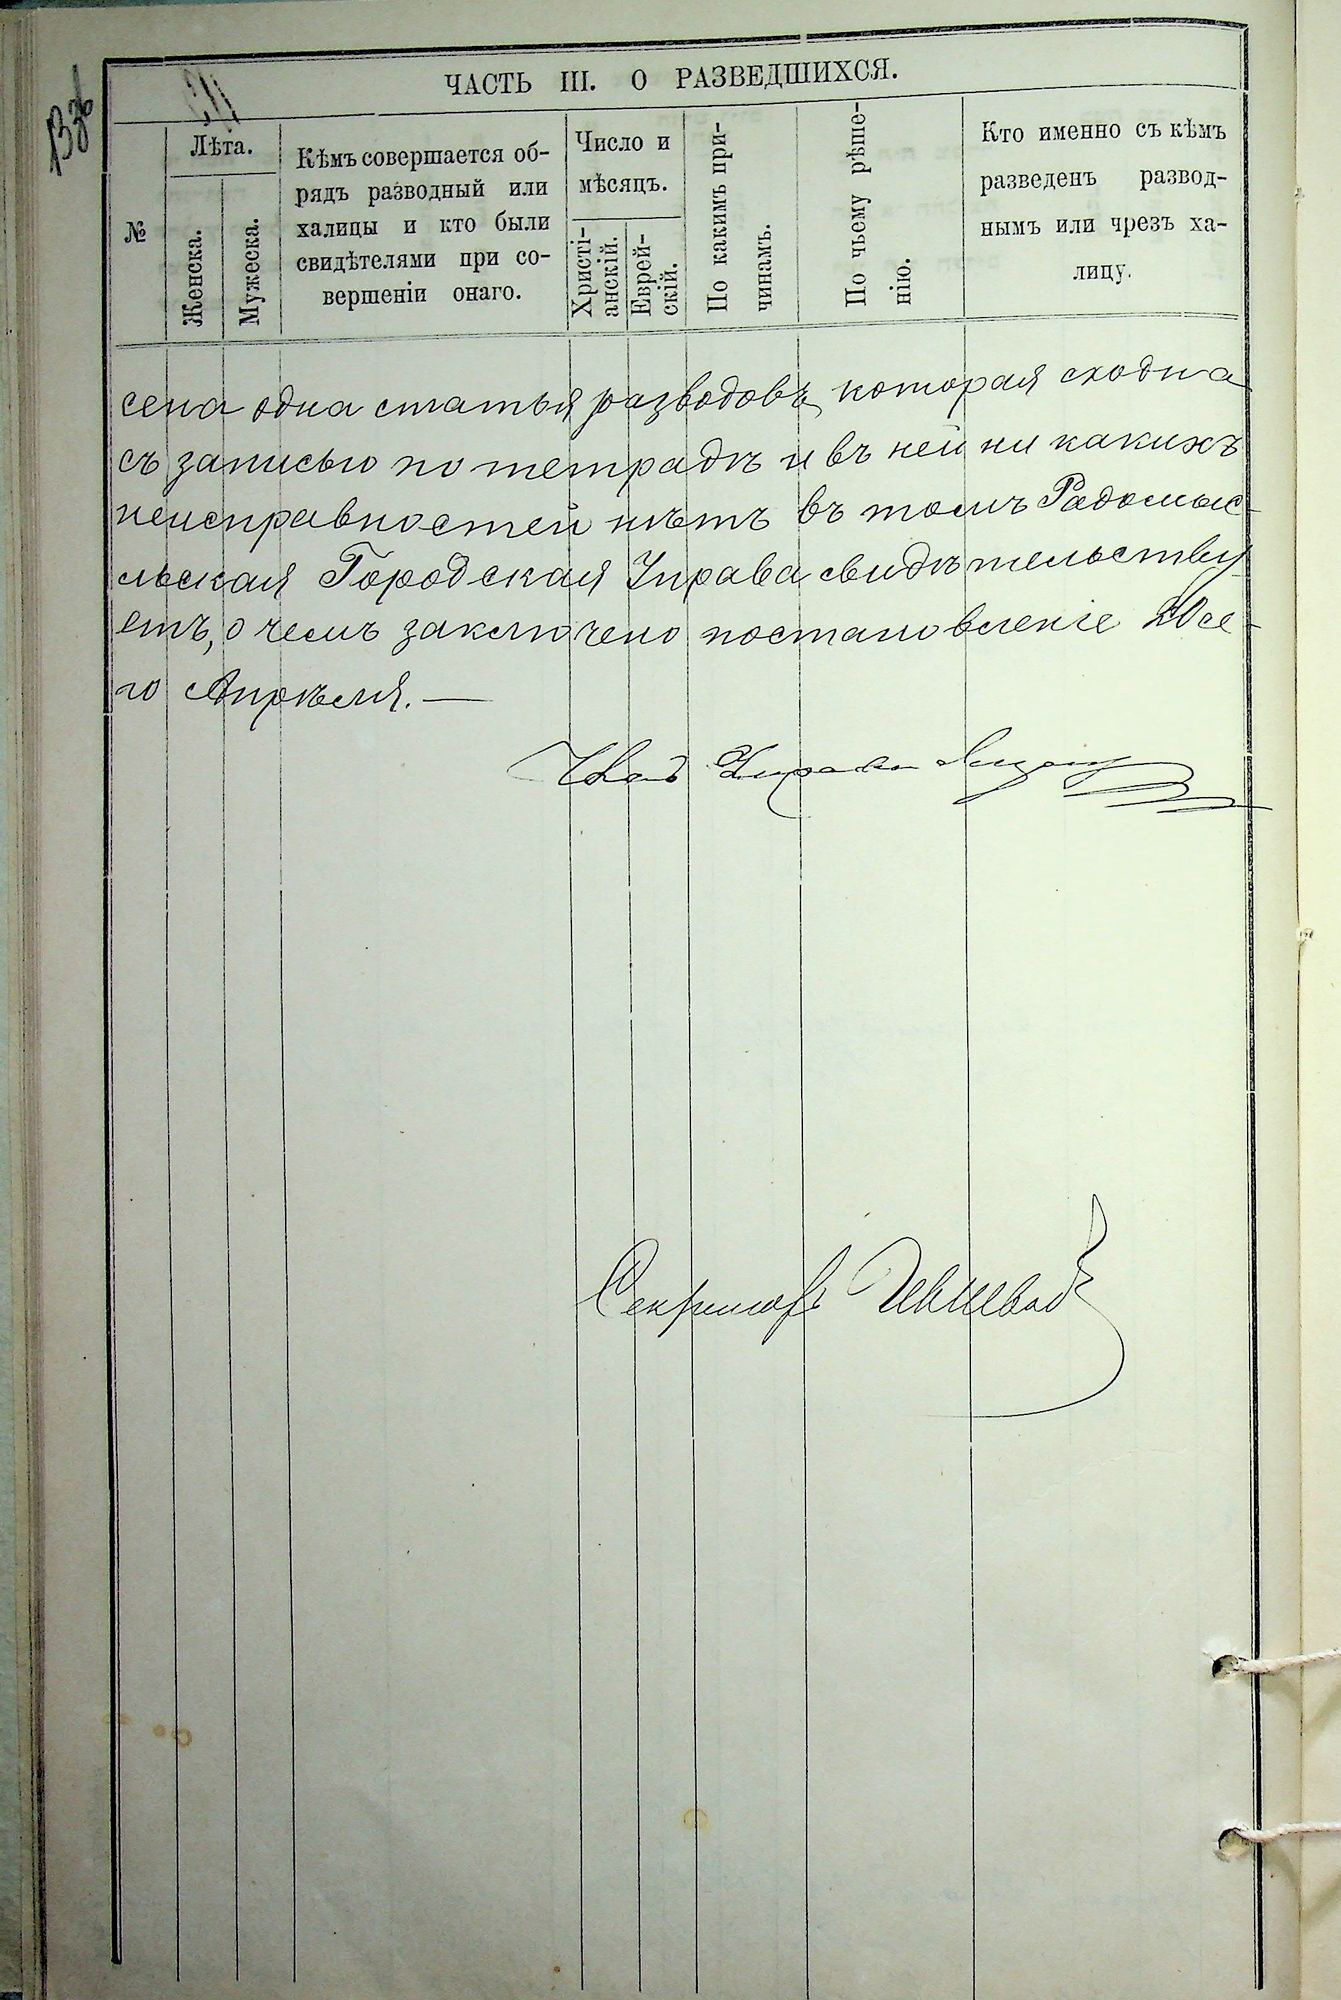 ЧАСТЬ III. О РАЗВЕДШИХСЯ.
№
Лѣта.
Женска.
Мужеска.
Кѣмъ совершается об-
рядъ разводный или
халицы и кто были
свидѣтелями при со-
вершеніи онаго.
Число и
мѣсяцъ.
Христі-
анскій.
Еврей-
скій.
По какимъ при-
чинамъ.
По чьему рѣше-
нію.
Кто именно съ кѣмъ
разведенъ развод-
нымъ или чрезъ ха-
лицу.
сена одна статья разводовъ, которая сходна
съ записью по тетрадѣ и въ ней ни какихъ
неисправностей нѣтъ въ томъ Радомыс-
льская Городская Управа свидѣтельству-
етъ, о чемъ заключено постановленіе 20 се-
го Апрѣля. —
Управы
Секретарь